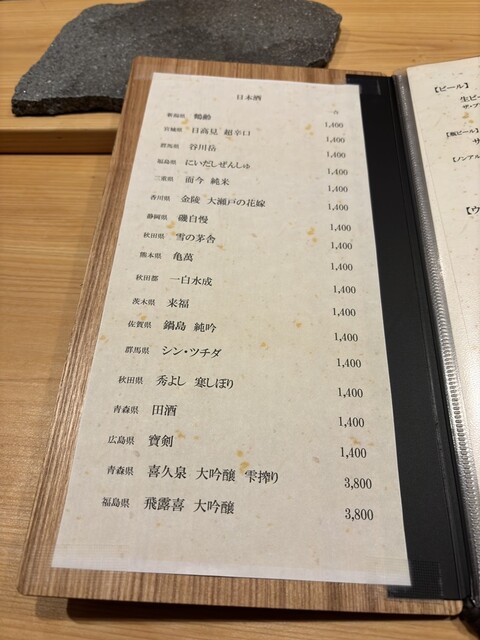 日本酒
一合
新潟県 鶴齢 1,400
宮城県 日高見 超辛口 1,400
群馬県 谷川岳 1,400
福島県 にいだしぜんしゅ 1,400
三重県 而今 純米 1,400
香川県 金陵 大瀬戸の花嫁 1,400
静岡県 磯自慢 1,400
秋田県 雪の茅舎 1,400
熊本県 亀萬 1,400
秋田郡 一白水成 1,400
茨木県 来福 1,400
佐賀県 鍋島 純吟 1,400
群馬県 シン・ツチダ 1,400
秋田県 秀よし 寒しぼり 1,400
青森県 田酒 1,400
広島県 寶剣 1,400
青森県 喜久泉 大吟醸 雫搾り 3,800
福島県 飛露喜 大吟醸 3,800
【ビール】
生ビ
ザ・プ
【瓶ビール】
サ
【ノンアル
【ウ